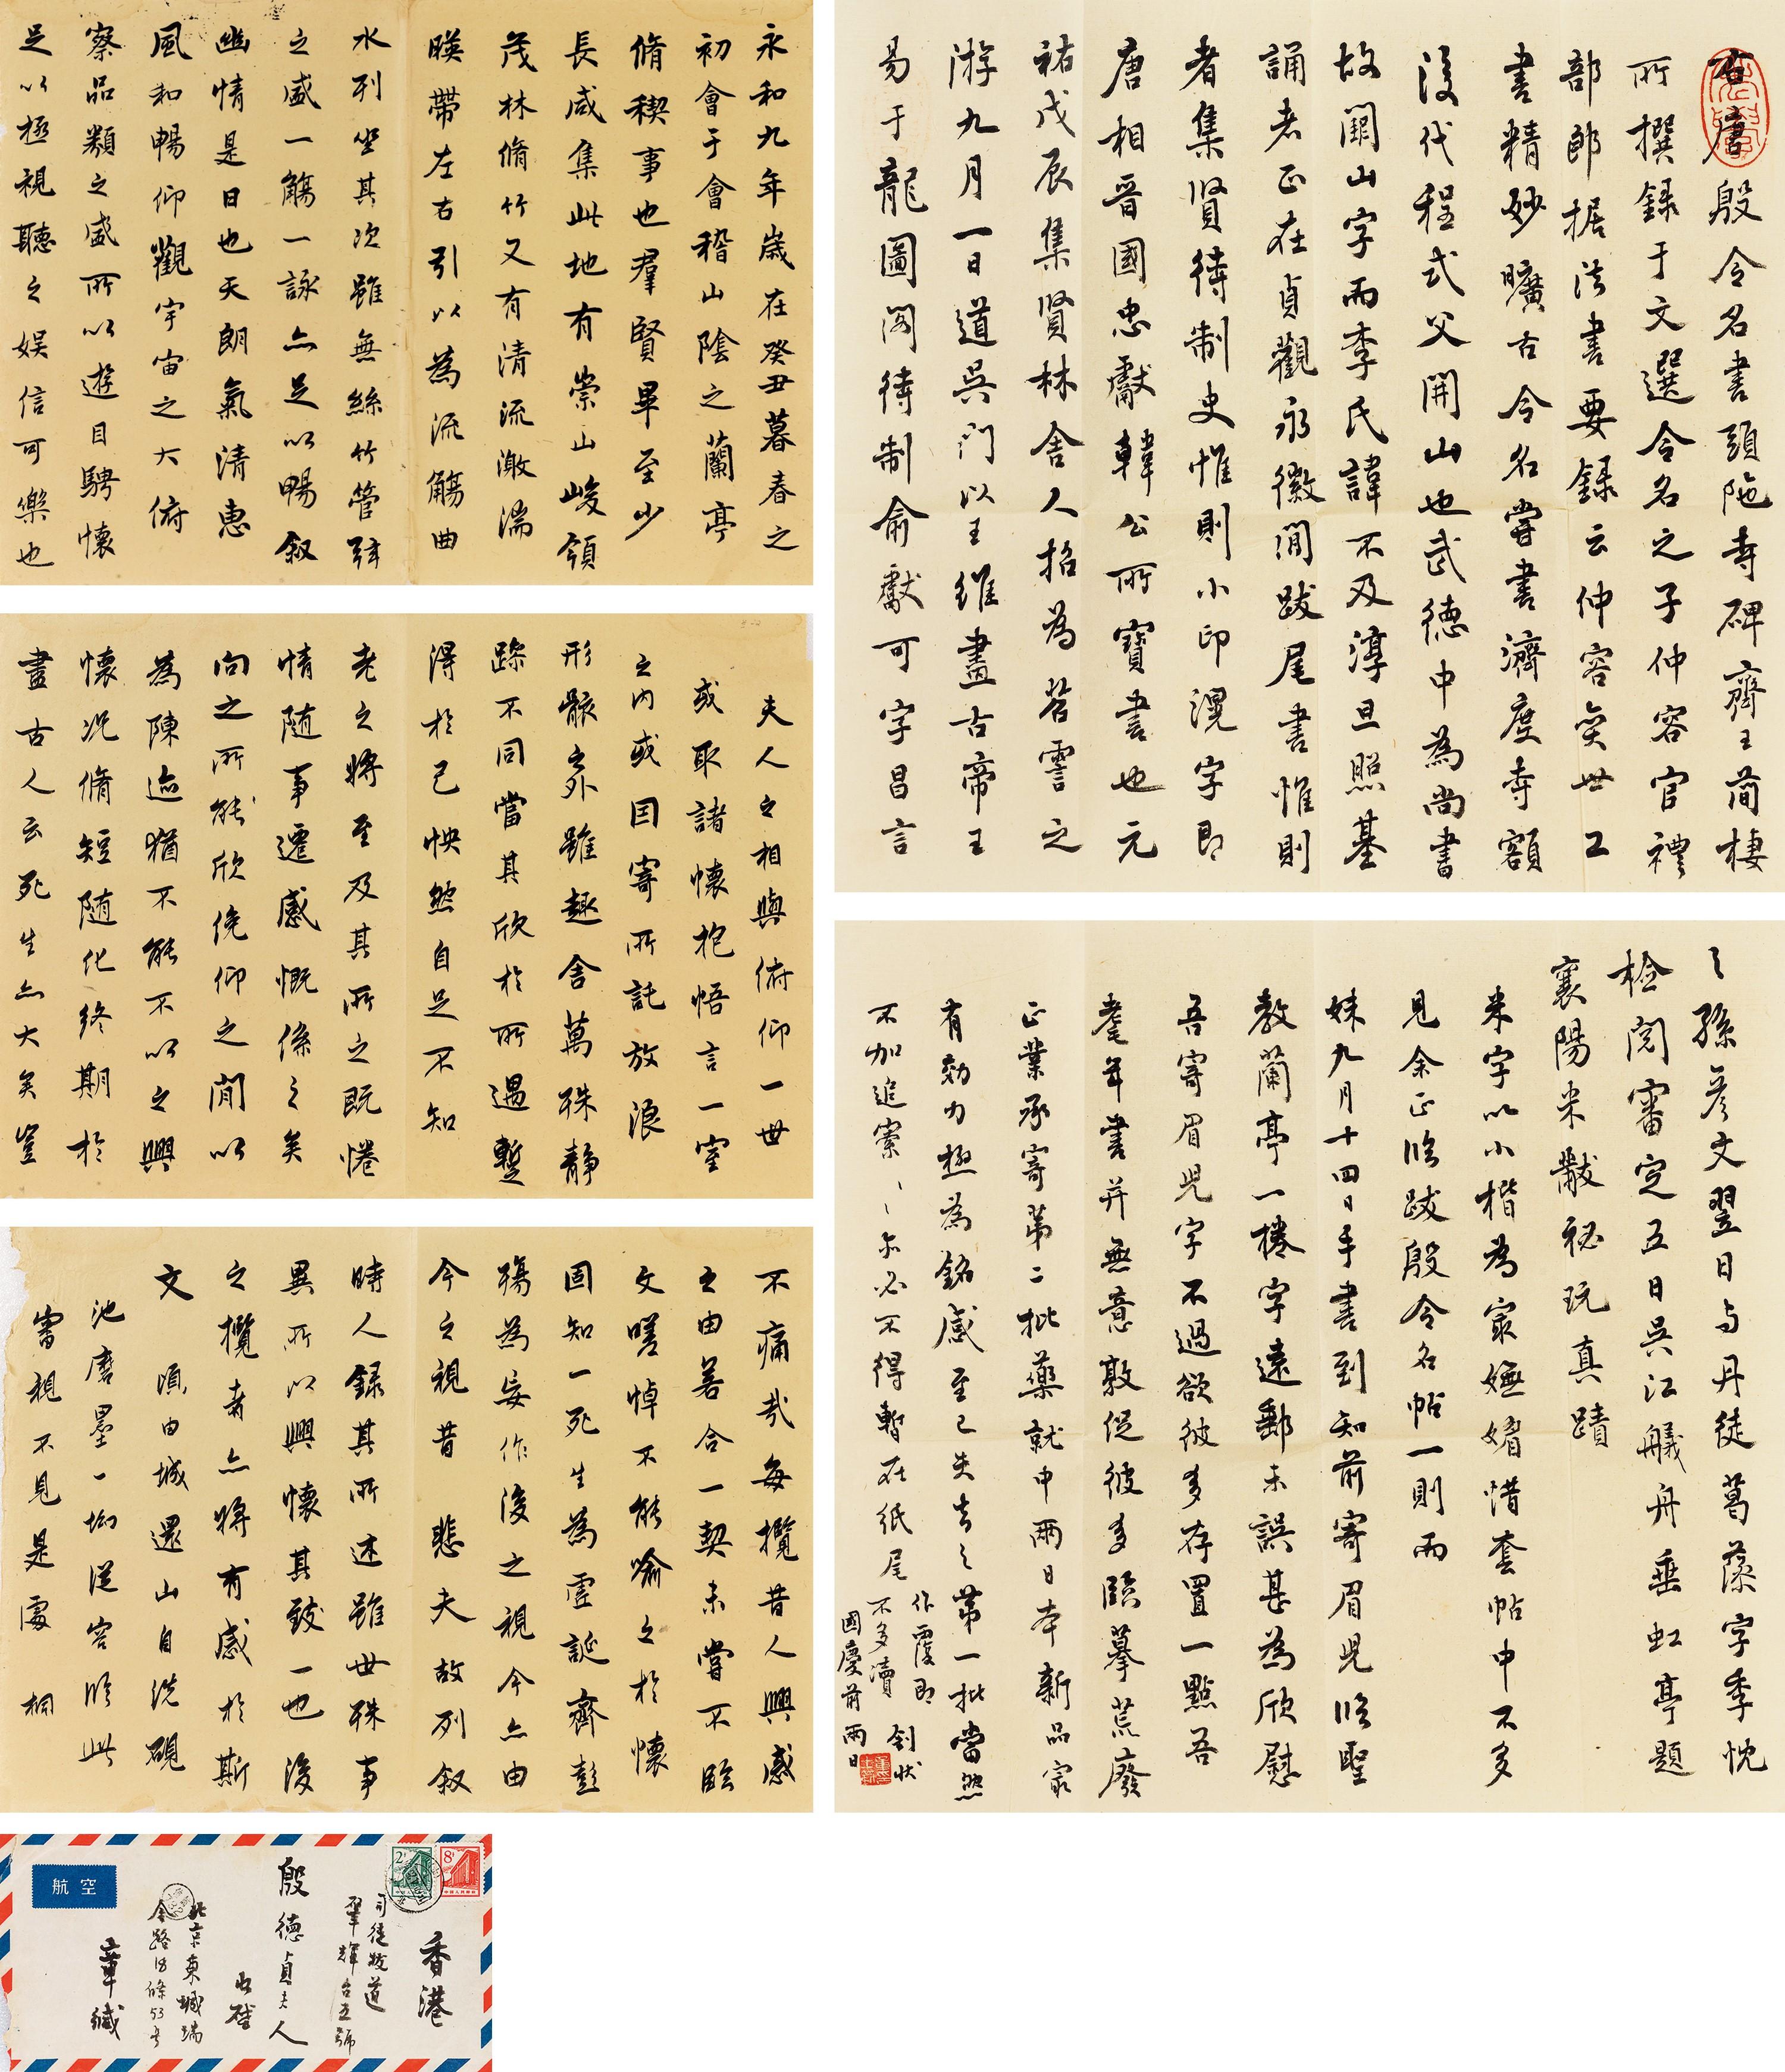 永和九年歲在癸丑暮春之
初會于會稽山陰之蘭亭
脩稧事也羣賢畢至少
長咸集此地有崇山峻領
茂林脩竹又有清流激湍
暎帶左右引以為流觴曲
水列坐其次雖無絲竹管弦
之盛一觴一詠亦足以暢叙
幽情是日也天朗氣清惠
風和暢仰觀宇宙之大俯
察品類之盛所以遊目騁懷
足以極視聽之娛信可樂也
夫人之相與俯仰一世
或取諸懷抱悟言一室
之内或因寄所託放浪
形骸之外雖趣舍萬殊静
躁不同當其欣於所遇蹔
得於己怏然自足不知
老之將至及其所之既惓
情随事遷感慨係之矣
向之所欣俛仰之閒以
為陳迹猶不能不以之興
懷況脩短随化終期於
盡古人云死生亦大矣豈
不痛哉每攬昔人興感
之由若合一契未嘗不臨
文嗟悼不能喻之於懷
固知一死生為虛誕齊彭
殤為妄作後之視今亦由
今之視昔 悲夫故列叙
時人録其所述雖世殊事
異所以興懷其致一也後
之攬者亦將有感於斯
文 頃由城還山自洗硯
池磨墨一㘭從容臨此
審視不見是處 桐
右唐殷令名書頭陁寺碑齊王簡棲
所撰録于文選令名之子仲容官禮
部郎據法書要録云仲容奕世工
書精妙曠古令名嘗書濟度寺額
後代程式父開山也武德中為尚書
故闕山字而李氏諱不及淳旦照基
誦者正在貞觀永徽間跋尾書惟則
者集賢待制史惟則小印滉字即
唐相晉國忠獻韓公所寶書也元
祐戊辰集賢林舍人招為苕霅之
游九月一日道吳門以王維畫古帝王
易于龍圖閣待制俞獻可字昌言
之孫彥文翌日與丹徒葛藻字季忱
檢閱審定五日吳江艤舟垂虹亭題
襄陽米黻祕玩真蹟
米字以小楷為最嫵媚惜套帖中不多
見余正臨跋殷令名帖一則而
妹九月十四日手書到知前寄眉兒臨聖
教蘭亭一捲字遠郵未誤甚為欣慰
吾寄眉兒字不過欲彼多存置一點吾
耄年書并無意敦促彼多臨摹荒廢
正業承寄第二批藥就中兩日本新品最
有効力極為銘感至已失去之第一批當然
不加追索索亦必不得暫在紙尾
作覆即
不多瀆 釗狀
國慶前兩日
航空
2
8
香港
司徒拔道
肇輝台五號
殷德貞夫人
收啓
北京東城
53号
章緘